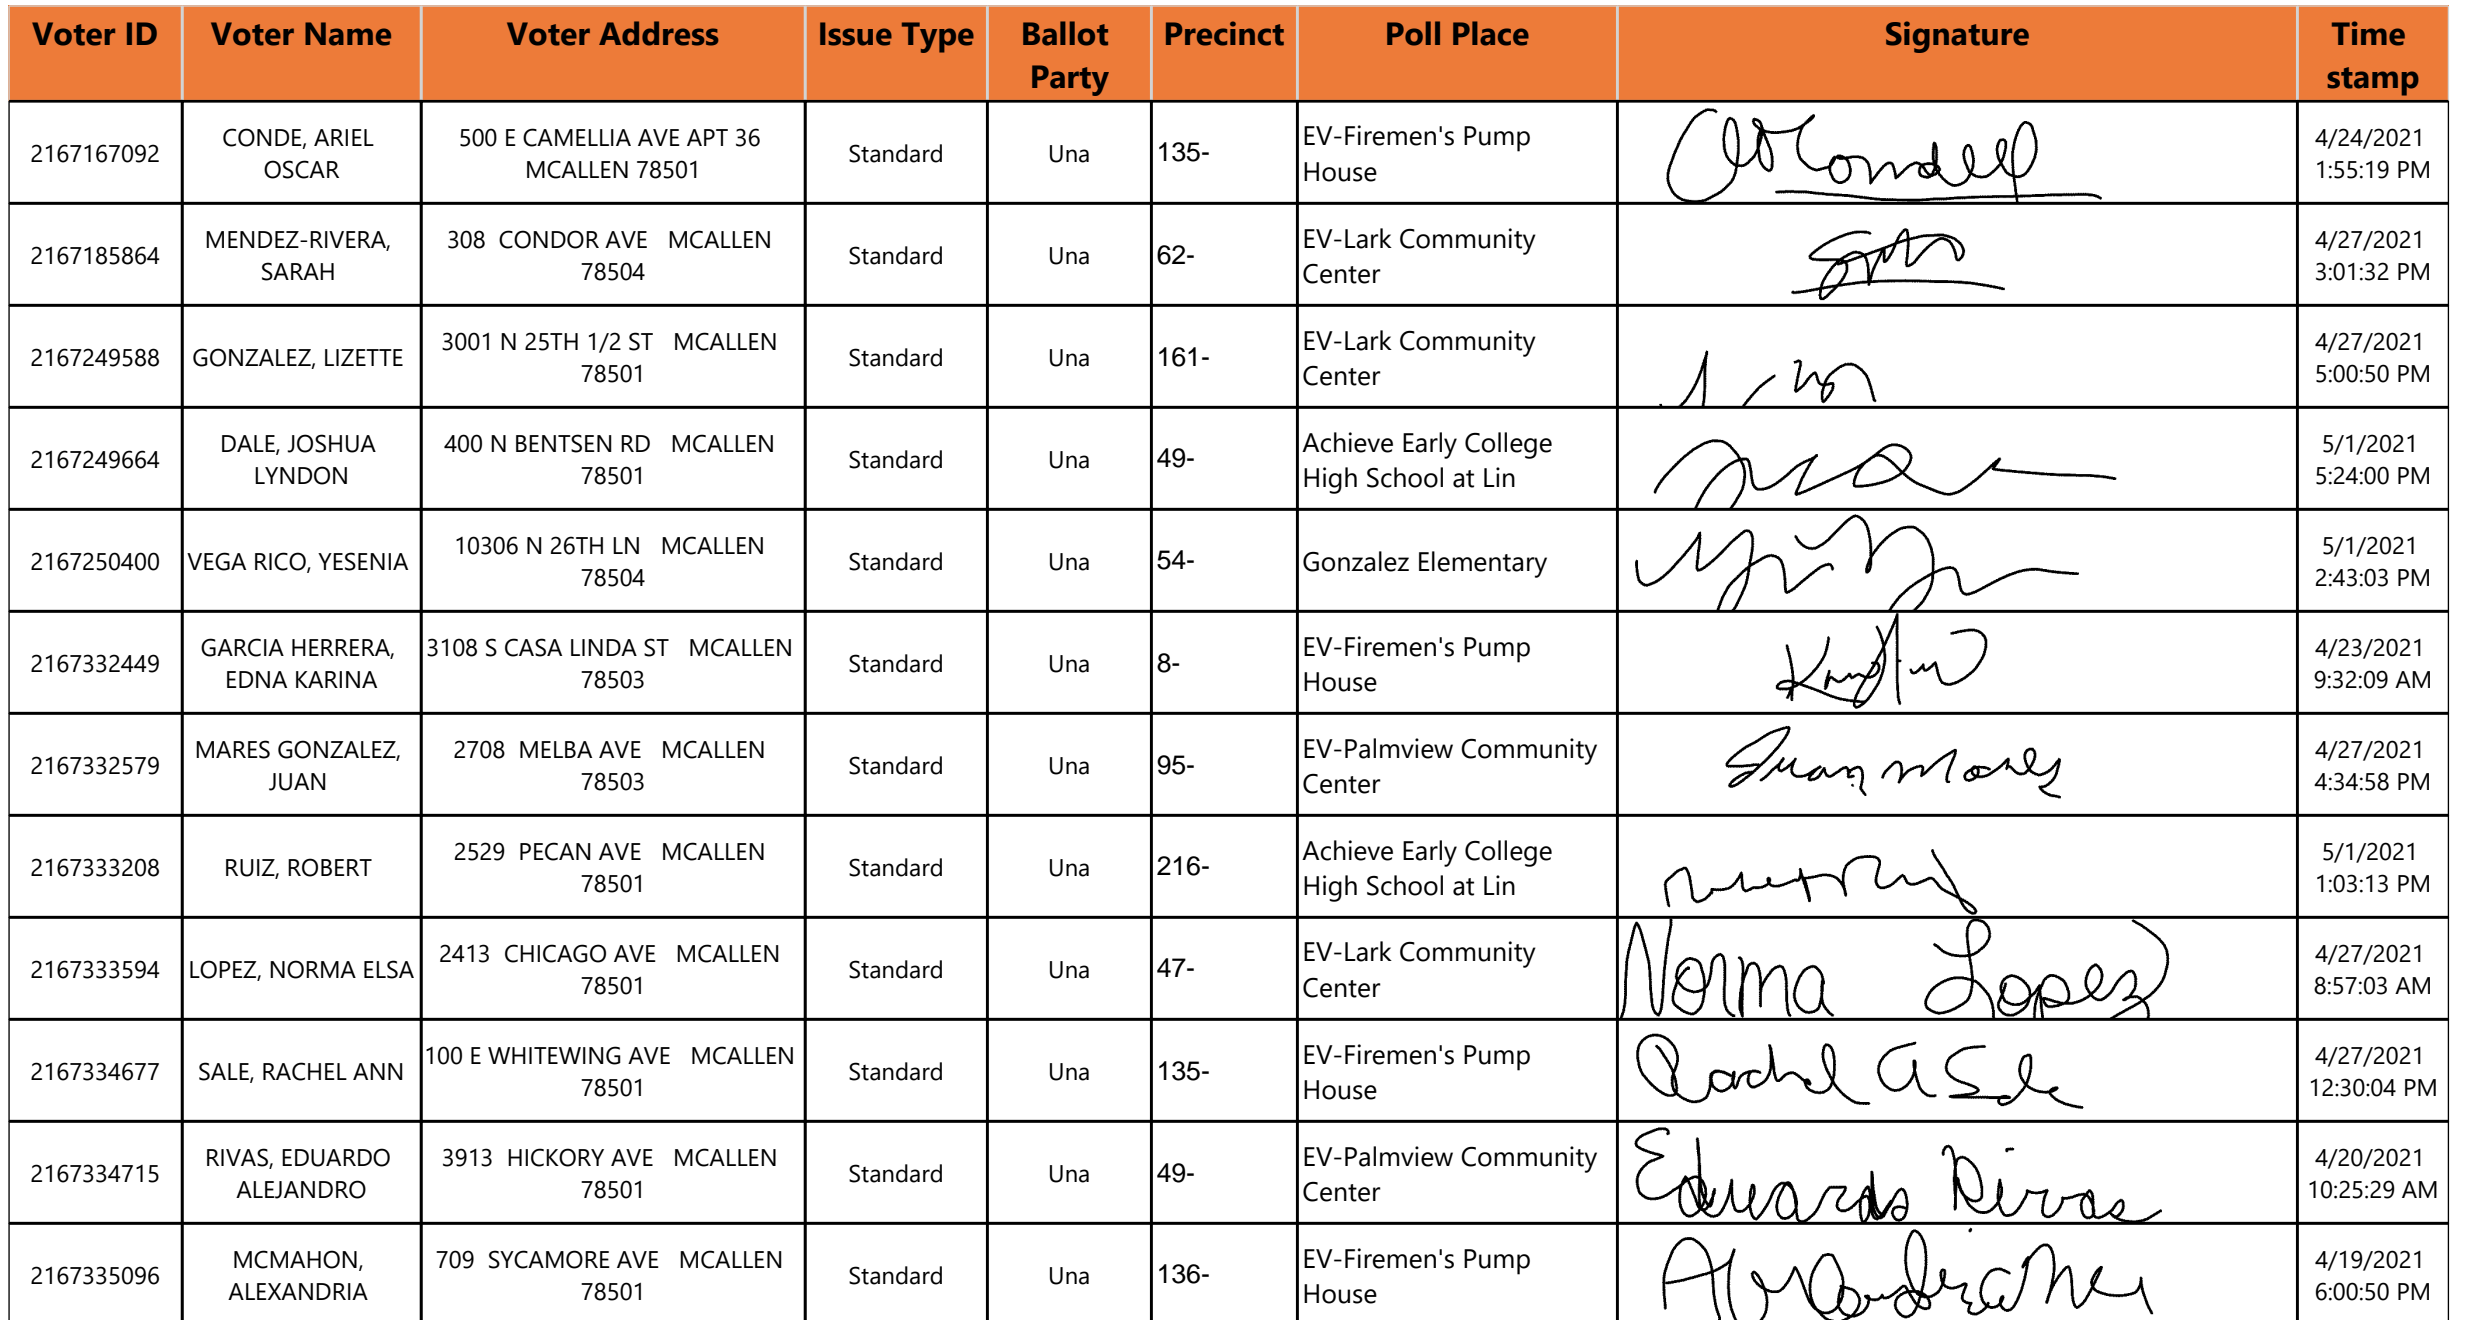 Voter ID Voter Name Voter Address Issue Type Ballot Party Precinct Poll Place Signature Time stamp
2167167092 CONDE, ARIEL OSCAR 500 E CAMELLIA AVE APT 36 MCALLEN 78501 Standard Una 135- EV-Firemen's Pump House 4/24/2021 1:55:19 PM
2167185864 MENDEZ-RIVERA, SARAH 308 CONDOR AVE MCALLEN 78504 Standard Una 62- EV-Lark Community Center 4/27/2021 3:01:32 PM
2167249588 GONZALEZ, LIZETTE 3001 N 25TH 1/2 ST MCALLEN 78501 Standard Una 161- EV-Lark Community Center 4/27/2021 5:00:50 PM
2167249664 DALE, JOSHUA LYNDON 400 N BENTSEN RD MCALLEN 78501 Standard Una 49- Achieve Early College High School at Lin 5/1/2021 5:24:00 PM
2167250400 VEGA RICO, YESENIA 10306 N 26TH LN MCALLEN 78504 Standard Una 54- Gonzalez Elementary 5/1/2021 2:43:03 PM
2167332449 GARCIA HERRERA, EDNA KARINA 3108 S CASA LINDA ST MCALLEN 78503 Standard Una 8- EV-Firemen's Pump House 4/23/2021 9:32:09 AM
2167332579 MARES GONZALEZ, JUAN 2708 MELBA AVE MCALLEN 78503 Standard Una 95- EV-Palmview Community Center Juan Mares 4/27/2021 4:34:58 PM
2167333208 RUIZ, ROBERT 2529 PECAN AVE MCALLEN 78501 Standard Una 216- Achieve Early College High School at Lin 5/1/2021 1:03:13 PM
2167333594 LOPEZ, NORMA ELSA 2413 CHICAGO AVE MCALLEN 78501 Standard Una 47- EV-Lark Community Center Norma Lopez 4/27/2021 8:57:03 AM
2167334677 SALE, RACHEL ANN 100 E WHITEWING AVE MCALLEN 78501 Standard Una 135- EV-Firemen's Pump House Rachel A Sale 4/27/2021 12:30:04 PM
2167334715 RIVAS, EDUARDO ALEJANDRO 3913 HICKORY AVE MCALLEN 78501 Standard Una 49- EV-Palmview Community Center Eduardo Rivas 4/20/2021 10:25:29 AM
2167335096 MCMAHON, ALEXANDRIA 709 SYCAMORE AVE MCALLEN 78501 Standard Una 136- EV-Firemen's Pump House 4/19/2021 6:00:50 PM